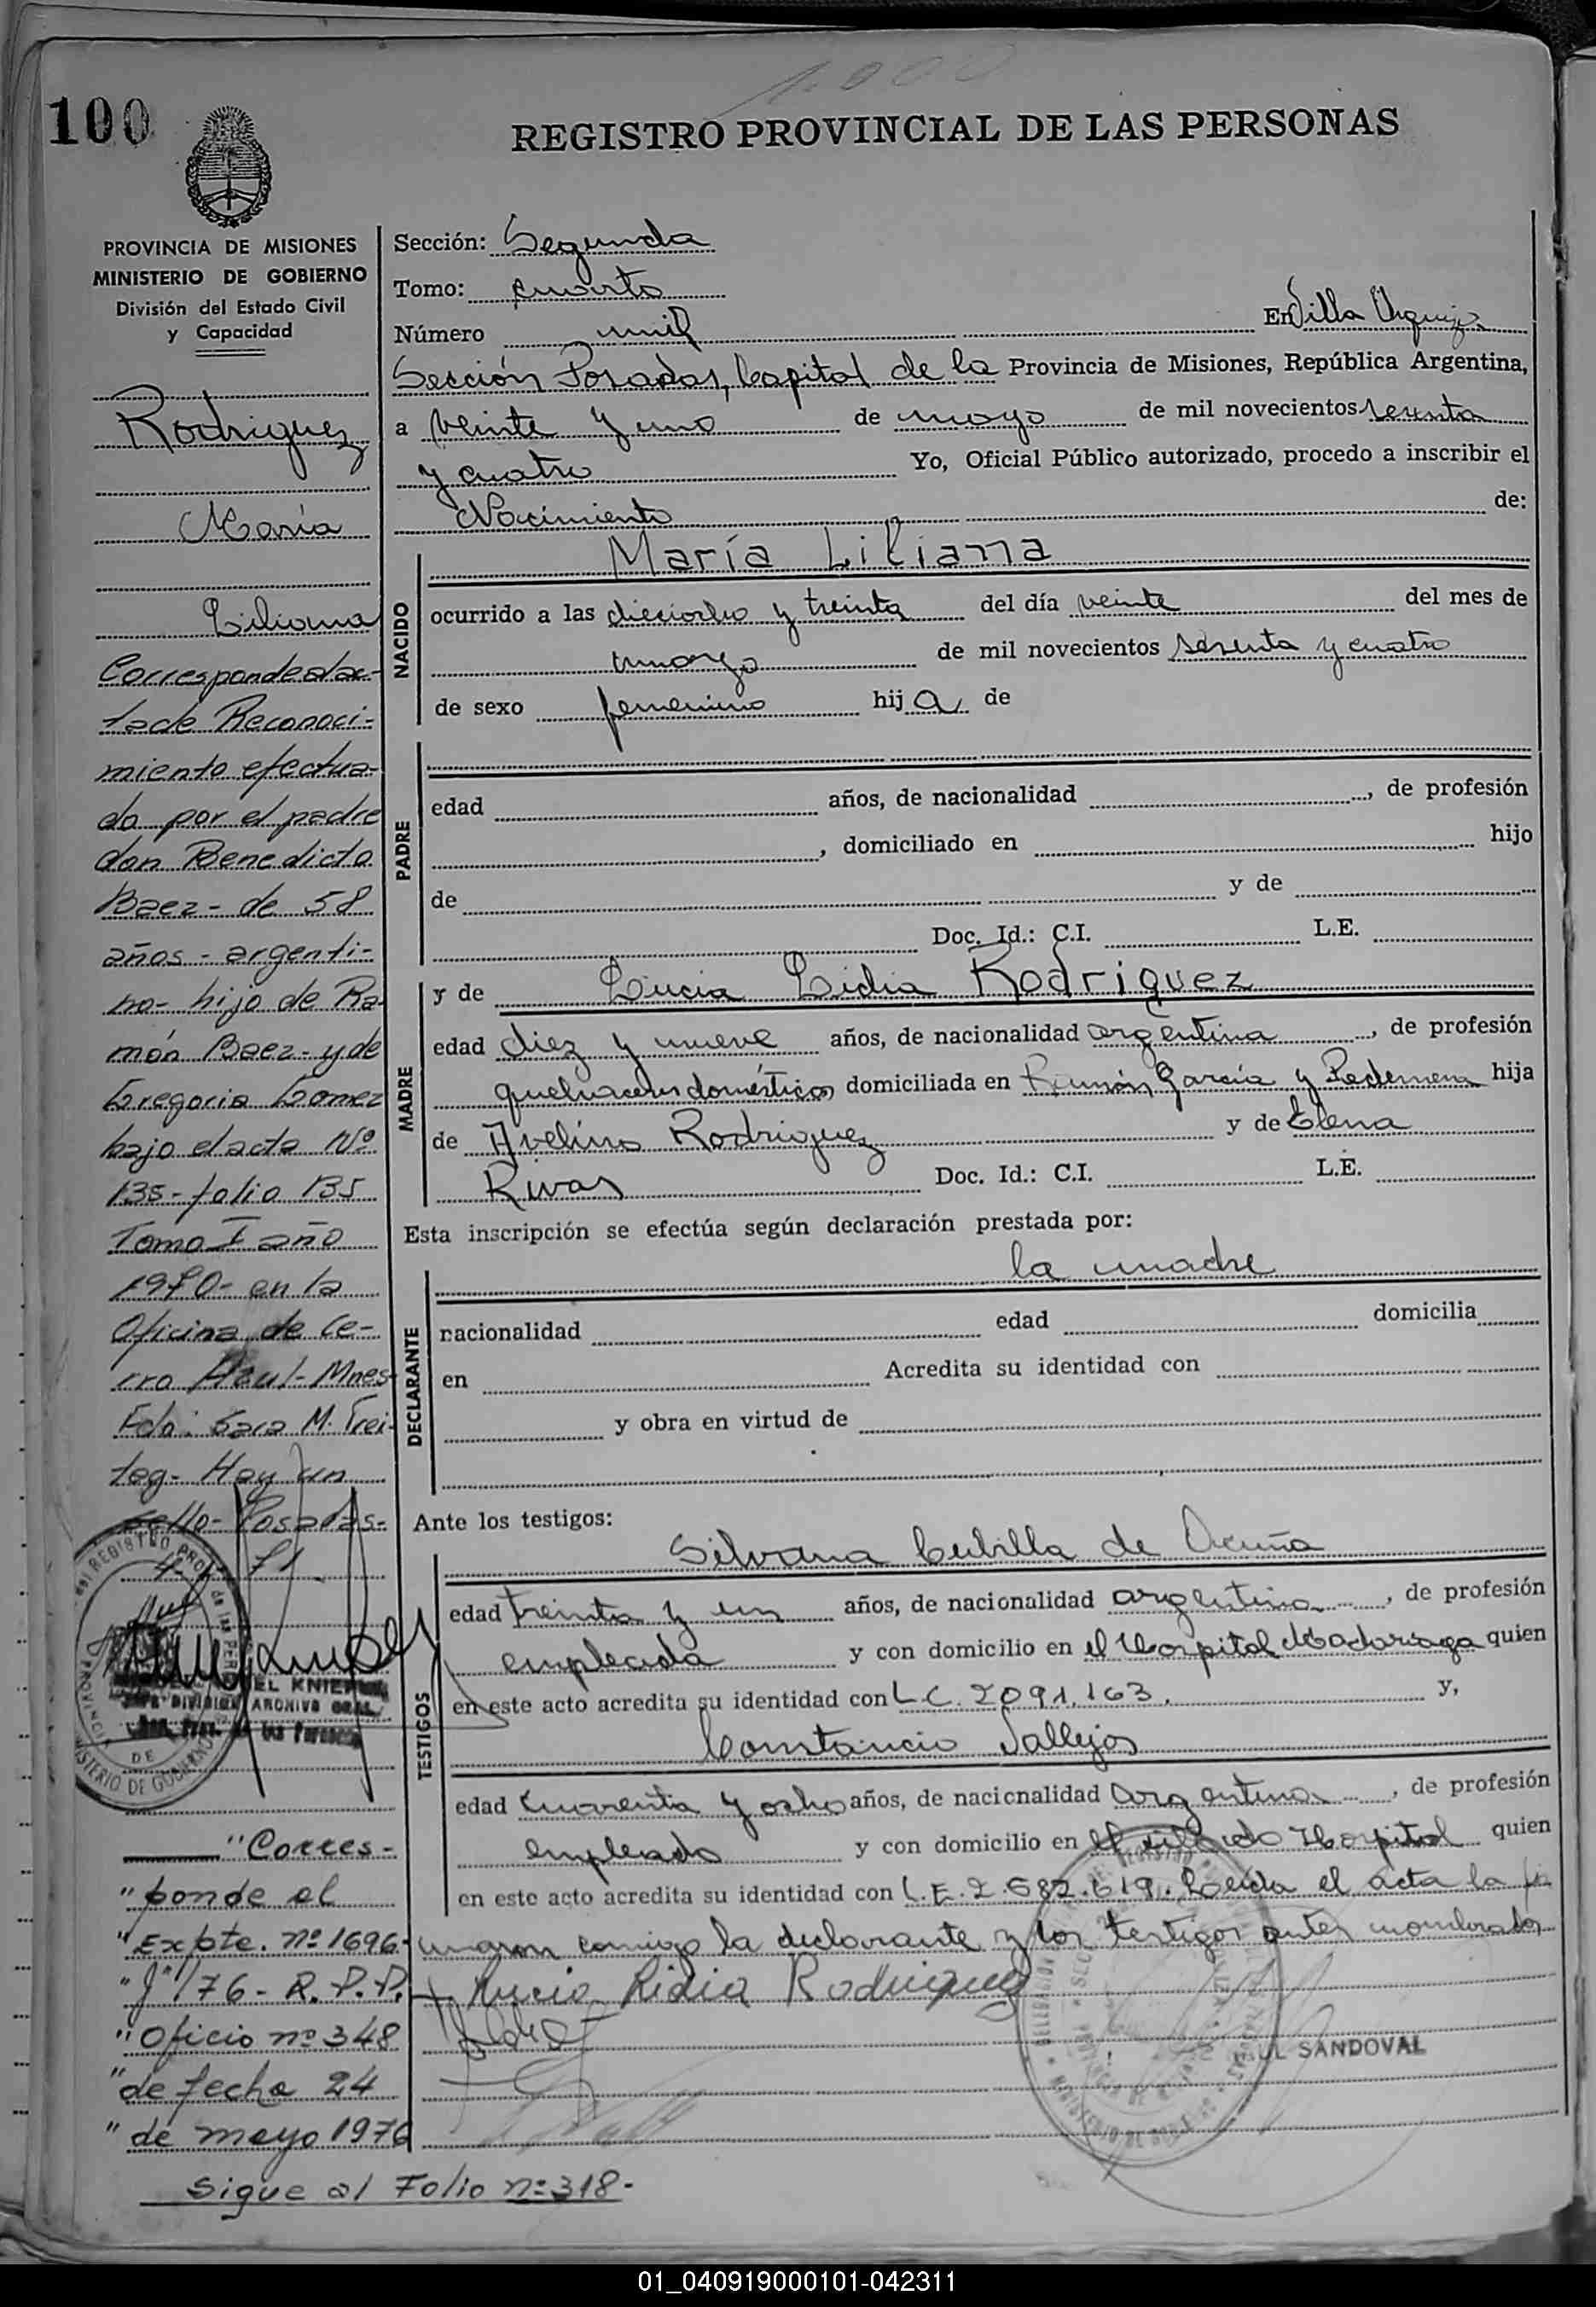 1.000
100
REGISTRO PROVINCIAL DE LAS PERSONAS
PROVINCIA DE MISIONES
MINISTERIO DE GOBIERNO
División del Estado Civil
y Capacidad
Rodriguez
María
Liliana
Corresponde al ac-
ta de Reconoci-
miento efectua-
do por el padre
don Benedicto
Baez - de 58
años - argenti-
no - hijo de Ra-
món Baez - y de
Gregoria Gomez
bajo el acta Nº
135 - folio 135
Tomo I año
1970 - en la
Oficina de Ce-
rro Azul - Mnes
Fdo: Sara M. Trei-
teg - Hay un
sello - Posadas -
DIVISION ARCHIVO GRAL.
"Corres-
"ponde al
"Expte. nº 1696-
"J"/76 - R.P.P.
"Oficio nº 348
"de fecha 24
"de mayo 1976
Sigue al Folio nº 318-
Sección: Segunda
Tomo: cuarto
Número mil En Villa Urquiza
Sección Posadas, Capital de la Provincia de Misiones, República Argentina,
a veinte y uno de mayo de mil novecientos sesenta
y cuatro Yo, Oficial Público autorizado, procedo a inscribir el
Nacimiento de:
NACIDO
María Liliana
ocurrido a las dieciocho y treinta del día veinte del mes de
marzo de mil novecientos sesenta y cuatro
de sexo femenino hija de
PADRE
edad años, de nacionalidad , de profesión
, domiciliado en hijo
de y de
Doc. Id.: C.I. L.E.
MADRE
y de Lucia Lidia Rodriguez
edad diez y nueve años, de nacionalidad argentina, de profesión
quehaceres domésticos domiciliada en Ramón García y hija
de Avelino Rodriguez y de Elena
Rivas Doc. Id.: C.I. L.E.
Esta inscripción se efectúa según declaración prestada por:
DECLARANTE
la madre
nacionalidad edad domicilia
en Acredita su identidad con
y obra en virtud de
Ante los testigos:
TESTIGOS
Silvana Cubilla de Acuña
edad treinta y un años, de nacionalidad argentina, de profesión
empleada y con domicilio en el Hospital Madariaga quien
en este acto acredita su identidad con L.C. 2091.163. y,
Constancio Vallejos
edad cuarenta y ocho años, de nacionalidad argentina, de profesión
empleado y con domicilio en el citado Hospital quien
en este acto acredita su identidad con L.E. 2.682.619. Leída el acta la fir
maron conmigo la declarante y los testigos antes nombrados
Lucia Lidia Rodriguez
SANDOVAL
01_040919000101-042311